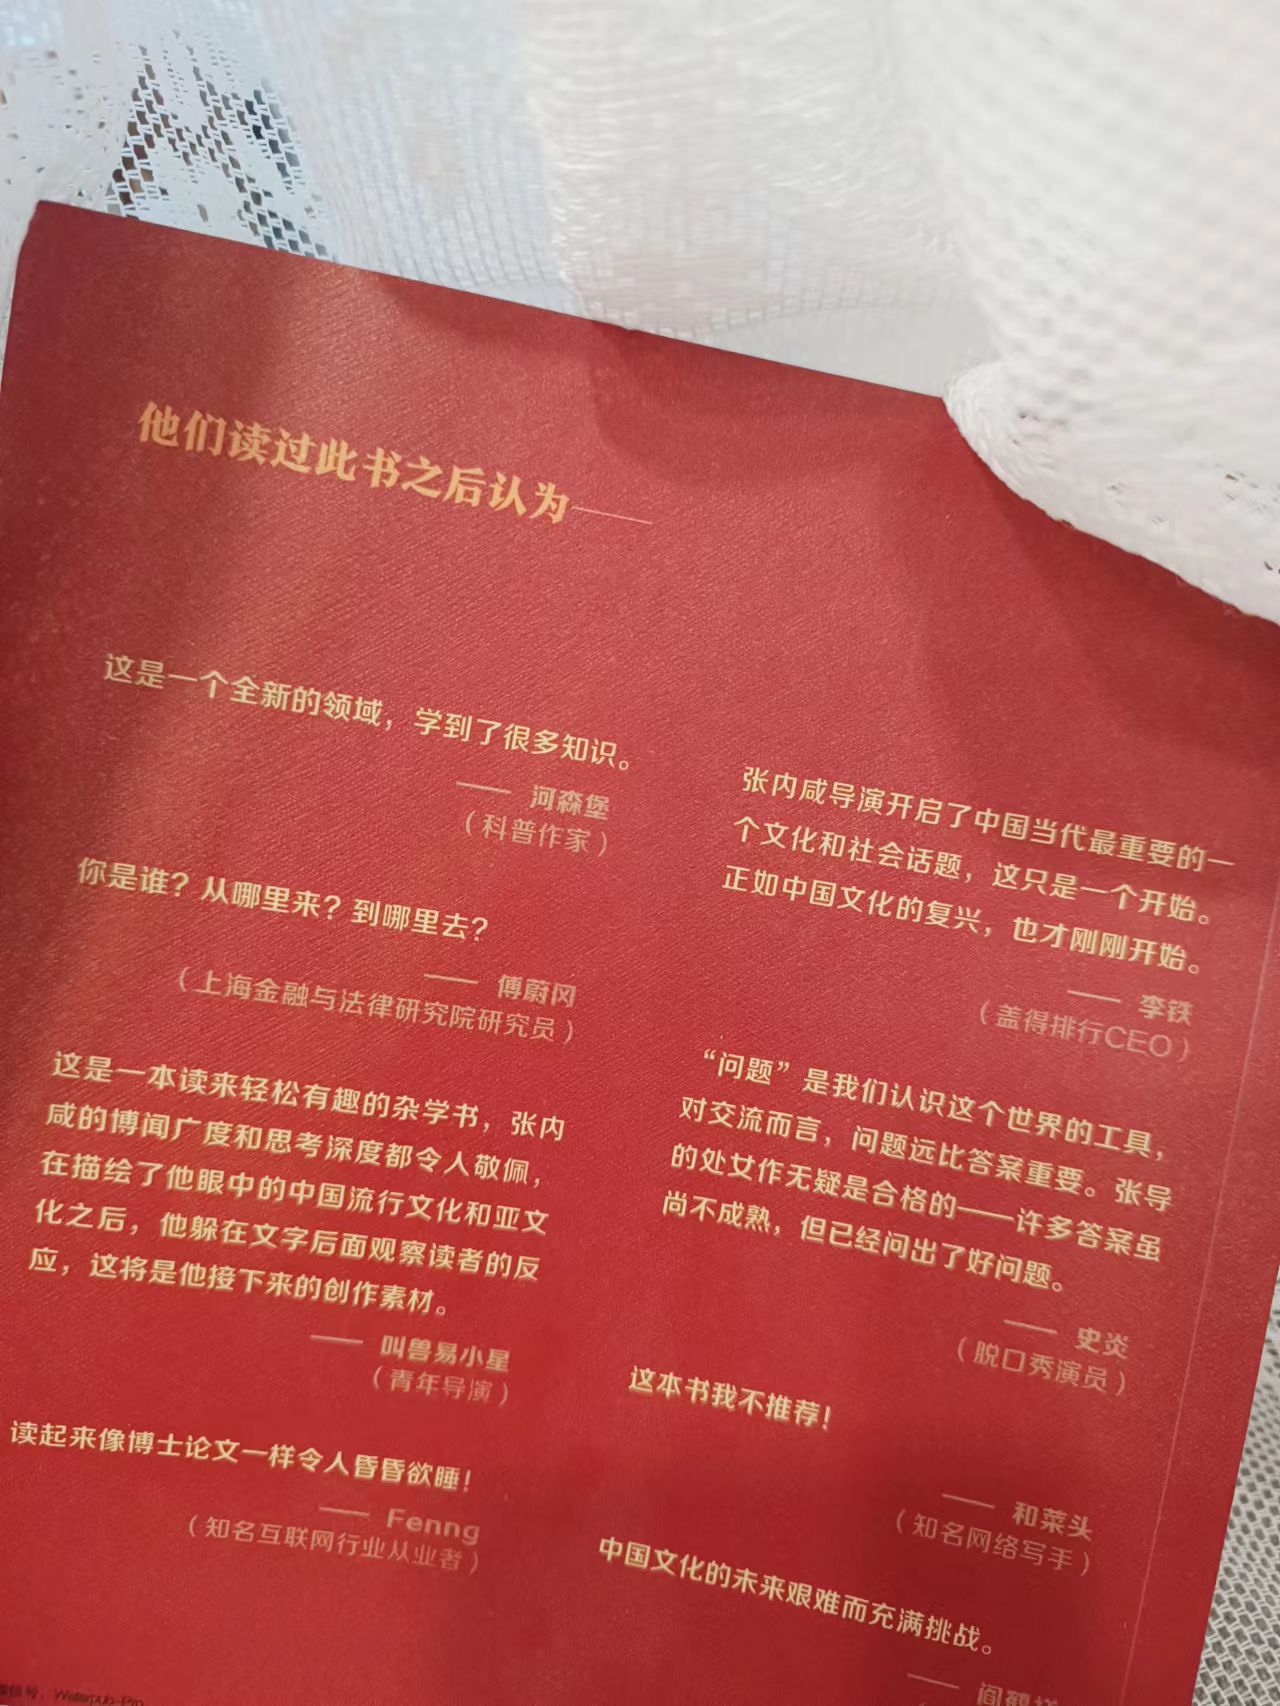 他们读过此书之后认为——
这是一个全新的领域，学到了很多知识。
—— 河森堡
（科普作家）
你是谁？从哪里来？到哪里去？
—— 傅蔚冈
（上海金融与法律研究院研究员）
这是一本读来轻松有趣的杂学书，张内
咸的博闻广度和思考深度都令人敬佩，
在描绘了他眼中的中国流行文化和亚文
化之后，他躲在文字后面观察读者的反
应，这将是他接下来的创作素材。
—— 叫兽易小星
（青年导演）
读起来像博士论文一样令人昏昏欲睡！
—— Fenng
（知名互联网行业从业者）
张内咸导演开启了中国当代最重要的一
个文化和社会话题，这只是一个开始。
正如中国文化的复兴，也才刚刚开始。
—— 李铁
（盖得排行CEO）
“问题”是我们认识这个世界的工具，
对交流而言，问题远比答案重要。张导
的处女作无疑是合格的——许多答案虽
尚不成熟，但已经问出了好问题。
—— 史炎
（脱口秀演员）
这本书我不推荐！
—— 和菜头
（知名网络写手）
中国文化的未来艰难而充满挑战。
—— 阎鹤祥